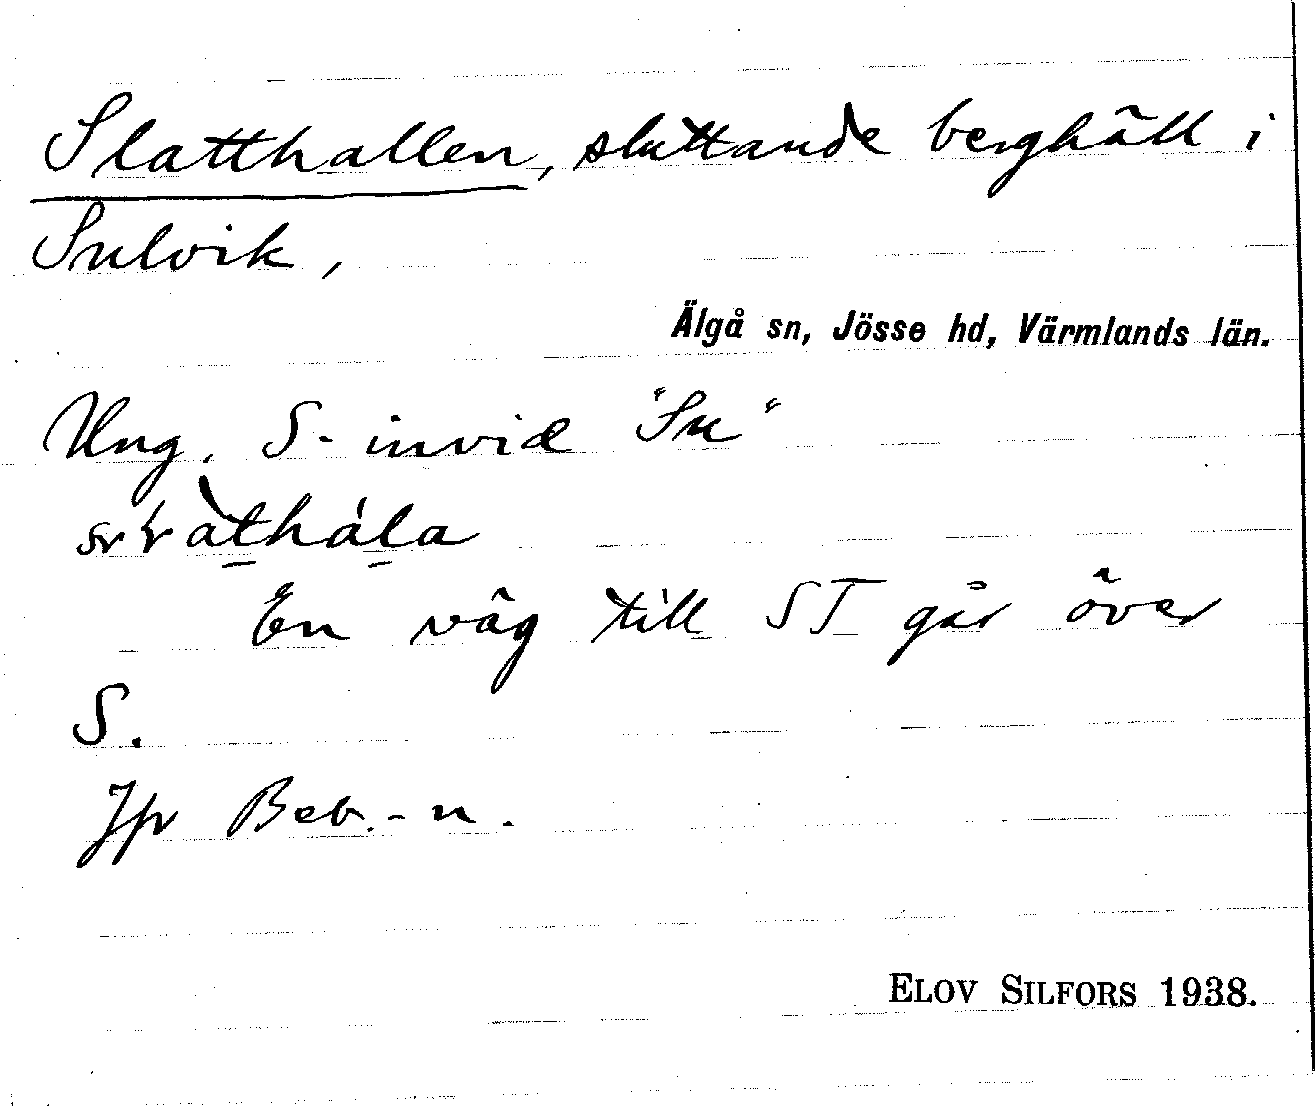 Slatthallen, sluttande berghäll i
Sulvik,
Älgå sn, Jösse hd, Värmlands län.
Ung. S- invid "Su"
En väg till ST går över
S.
Jfr Beb.-n.
ELOV SILFORS 1938.